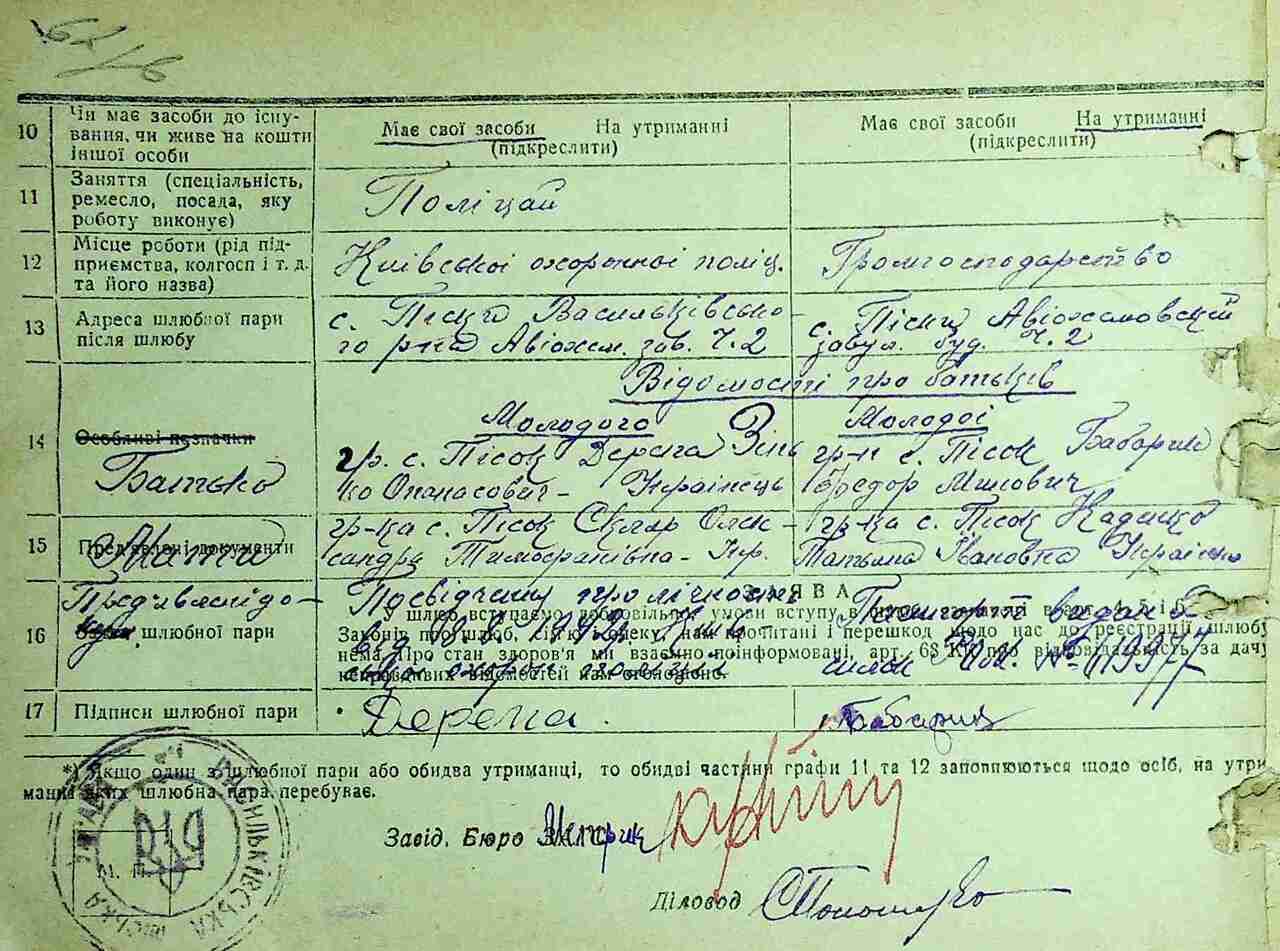 10 Чи має засоби до існу-
вання, чи живе на кошти
іншої особи
Має свої засоби На утриманні
(підкреслити)
Має свої засоби На утриманні
(підкреслити)
11 Заняття (спеціальність,
ремесло, посада, яку
роботу виконує)
Поліцай
12 Місце роботи (рід під-
приємства, колгосп і т. д.
та його назва)
Київської охоронної поліц.
Громгосподарство
13 Адреса шлюбної пари
після шлюбу
с. Піски Васильківсько-
го р-на зав. Ч. 2
с. Піски
завул. буд. Ч. 2
Відомості про батьків
14 Особливі позначки
Батько
Молодого
гр. с. Пісок Дерепа Зінь
ко Опанасович - Українець
Молодої
гр-н с. Пісок Бабарик
Федор
15 Пред'явлені документи
Мати
гр-ка с. Пісок Скляр Олек-
сандра Тимофанівна - Укр.
гр-ка с. Пісок
Татьяна Івановна Українка
16 шлюбної пари
Пред'явлені до-
Посвідчення про лічність
Пашпорт видано
№ 119977
ЗАЯВА
У шлюб вступаємо добровільно, умови вступу в
Законів про шлюб, сім'ю і опіку, нам прочитані і перешкод щодо нас до реєстрації шлюбу
нема. Про стан здоров'я ми взаємно поінформовані, арт. 68 КК про відповідальність за дачу
неправдивих відомостей нам оголошено.
17 Підписи шлюбної пари
Дерепа.
Бабарик
*) Якщо один з шлюбної пари або обидва утриманці, то обидві частини графи 11 та 12 заповнюються щодо осіб, на утри
манні яких шлюбна пара перебуває.
Завід. Бюро ЗАГС
М. П.
Діловод
ВАСИЛЬКІВСЬКА МІСЬКА УПРАВА